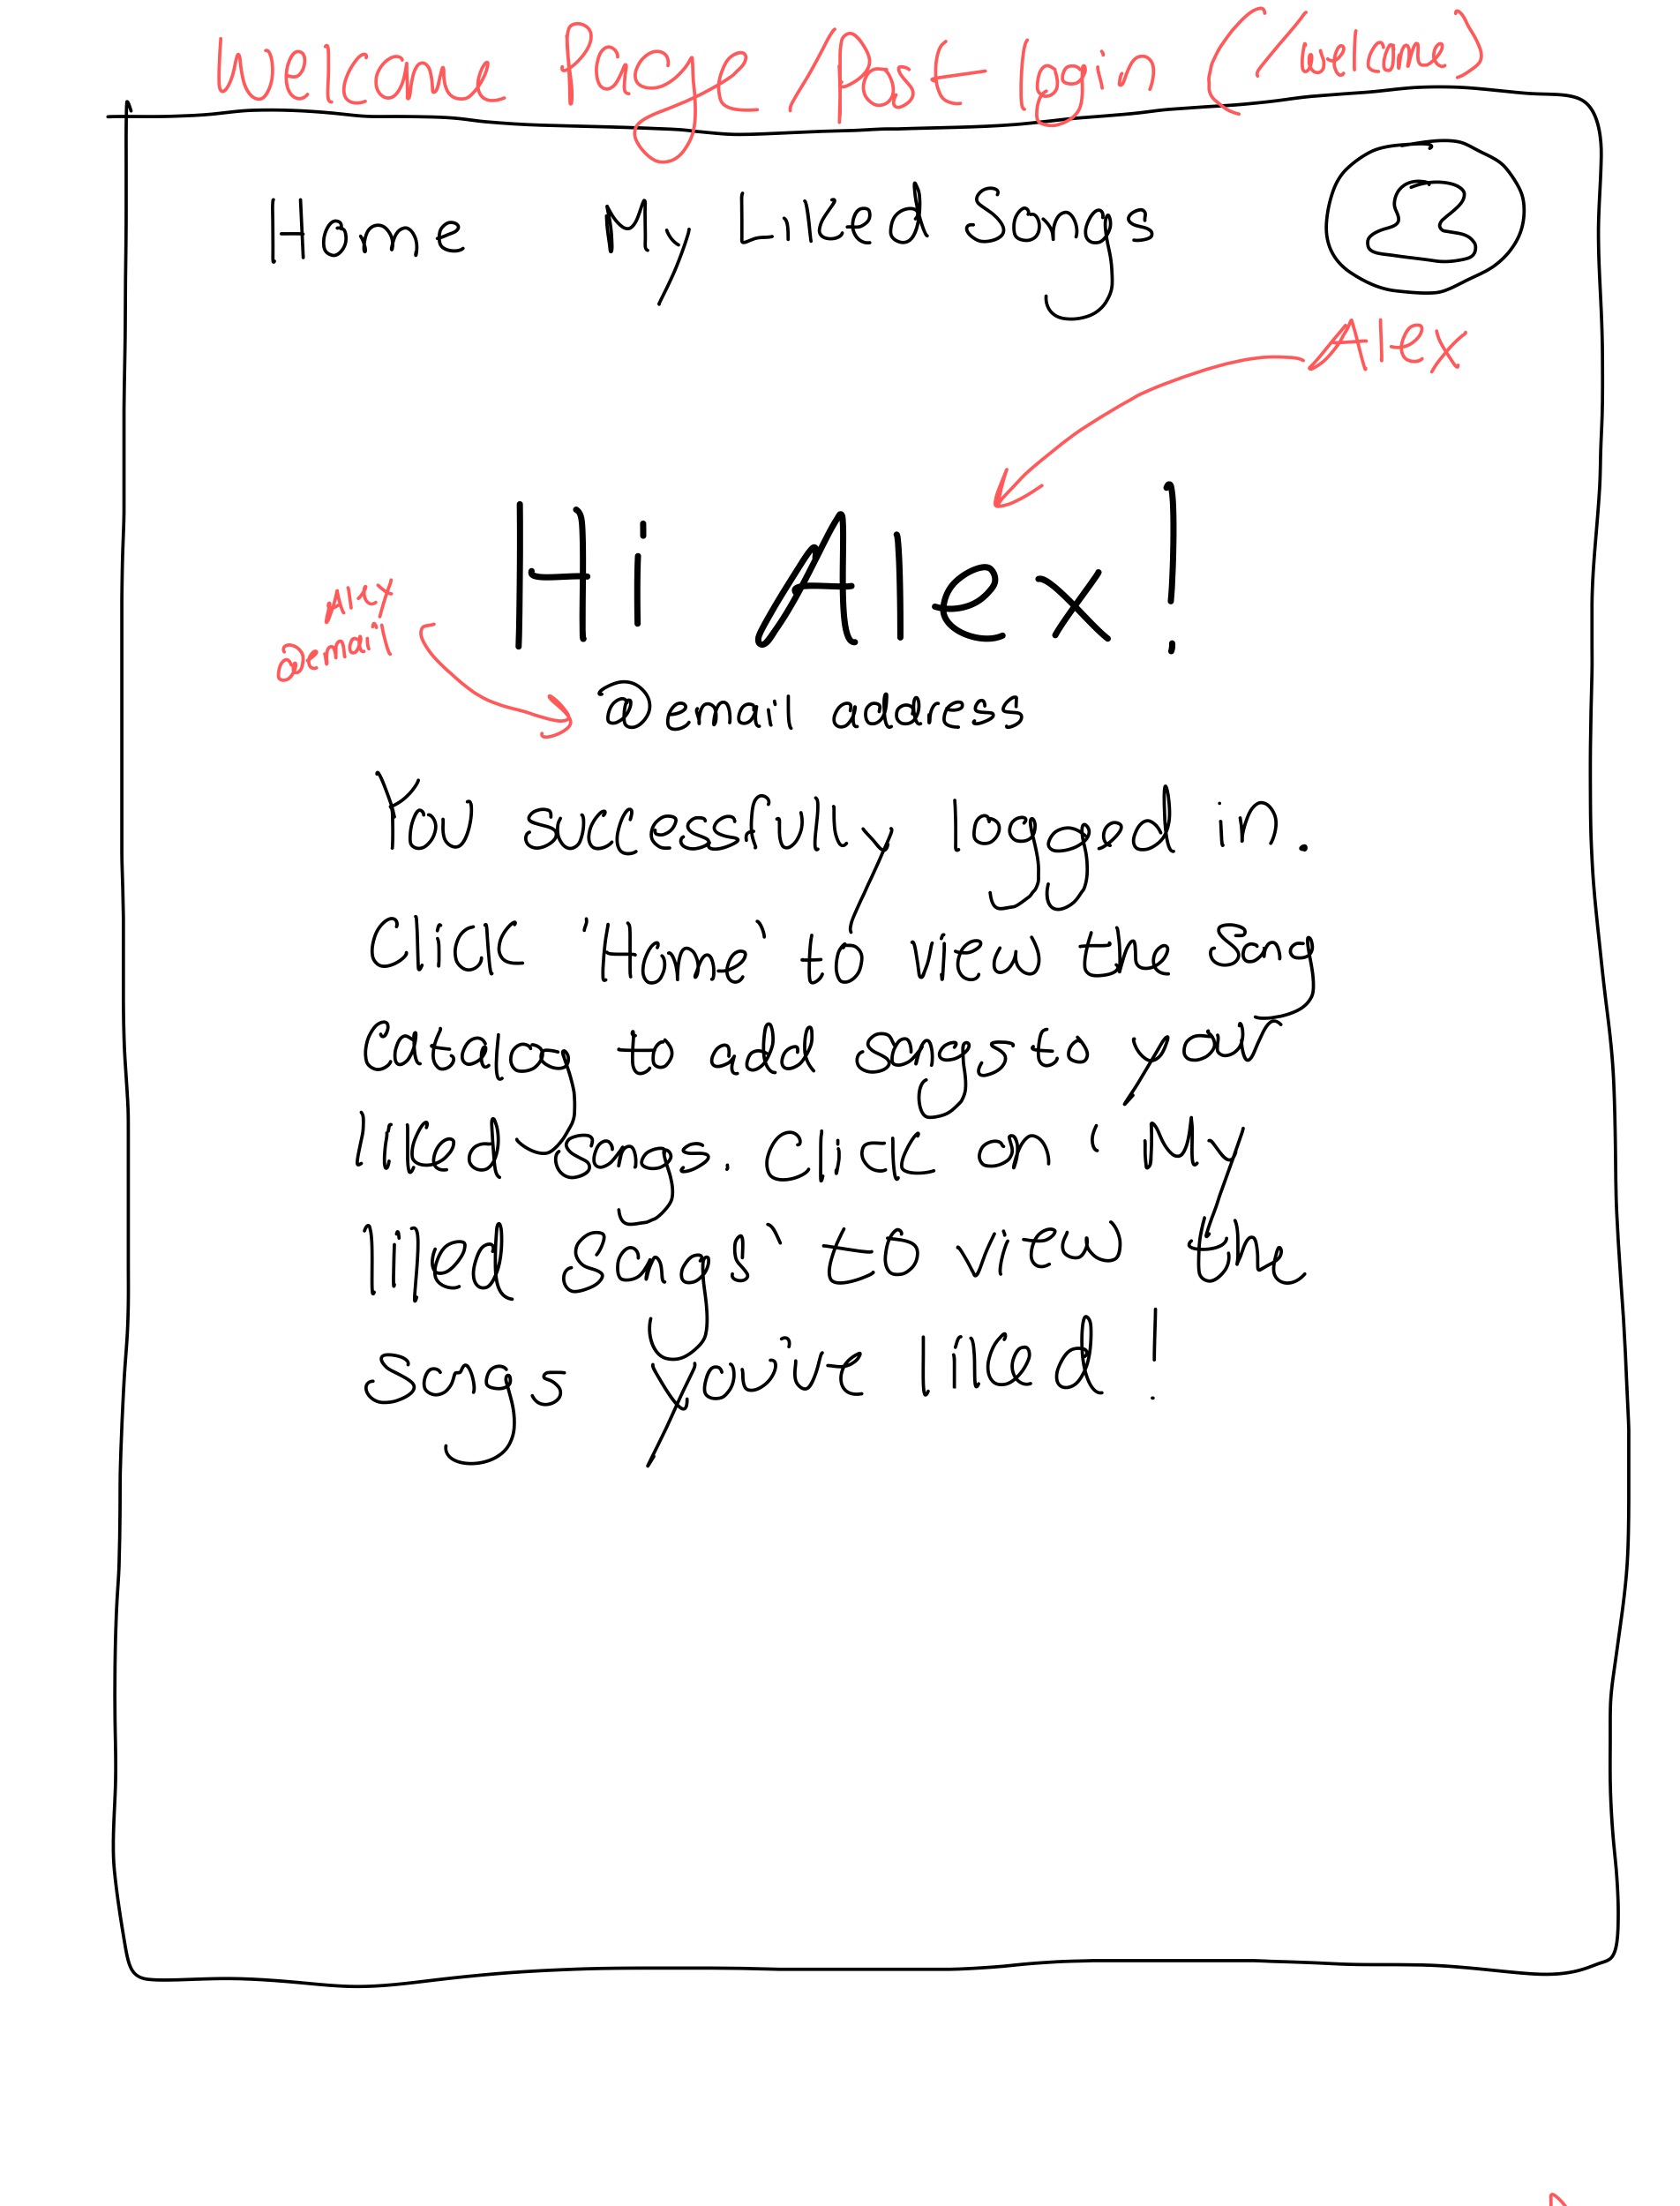 Welcome Page / Post login (/welcome)
Home My Liked Songs
Alex
Hi Alex!
Alex
@email
@email address
You successfully logged in.
Click 'Home' to view the song
catalog to add songs to your
liked songs. Click on 'My
liked songs' to view the
songs you've liked!